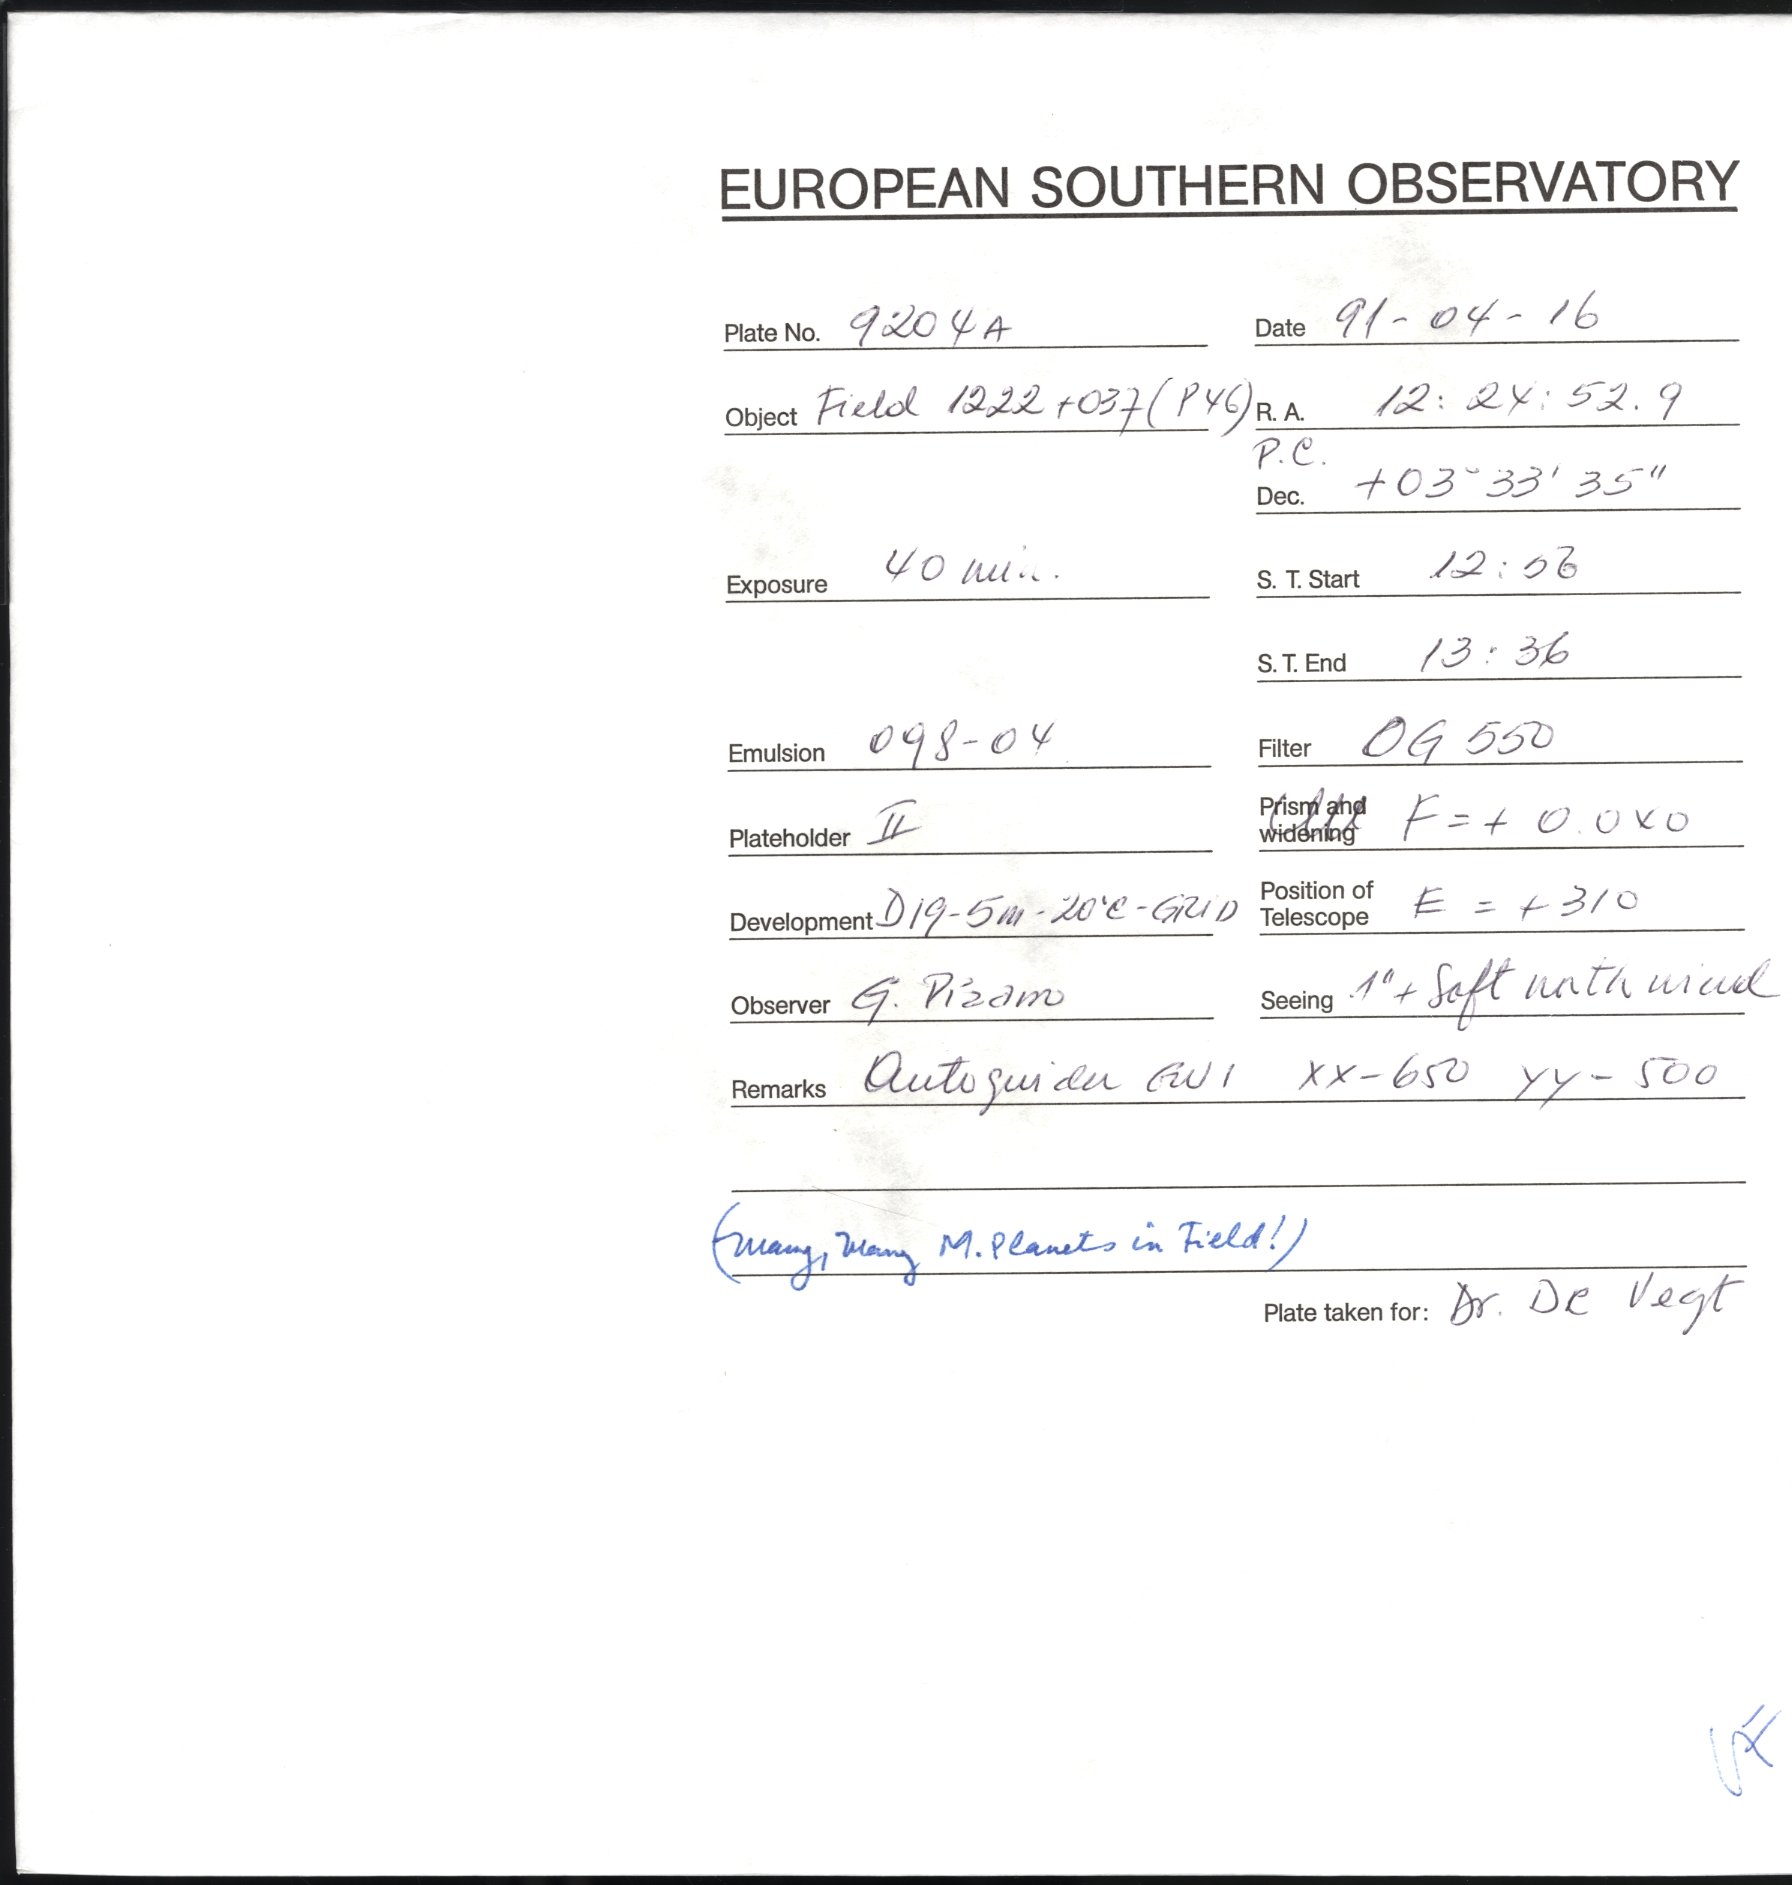 EUROPEAN SOUTHERN OBSERVATORY
Plate No. 9204A Date 91-04-16
Object Field 1222+037(P46) R. A. 12: 24: 52.9
P.C.
Dec. +03° 33' 35"
Exposure 40 min. S. T. Start 12:56
S. T. End 13:36
Emulsion 098-04 Filter OG 550
Plateholder II Prism and widening F=+ 0.040
Development D19-5m-20°C-GRID Position of Telescope E = +310
Observer G. Pizarro Seeing 1"+ Soft north wind
Remarks Autoguider GW1 XX-650 YY-500
(Many, Many M. Planets in Field!)
Plate taken for: Dr. De Vegt